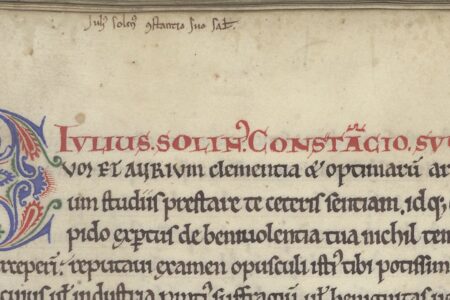 Iuli' solin' ɔstantio suo sał.
IVLIUS. SOLIN'. CONSTĀCIO. SVO
VOI ET AURIUM clementia & optimarū ar
um studiis prestare te ceteris sentiam. idq;
pido exp̄tus de beniuolentia tua nichil tem
reperi: reputaui examen opusculi isti' tibi potissim
cuius ul' industria suffragiū ul' benignitas